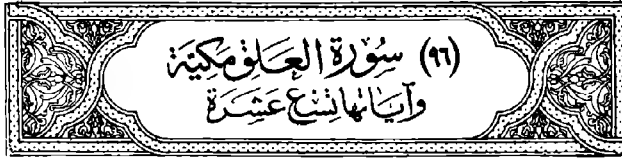 (٩٦) سُورَة العَلَق مَكيَّة
وَآيَاتهَا تِسْع عَشَرَة